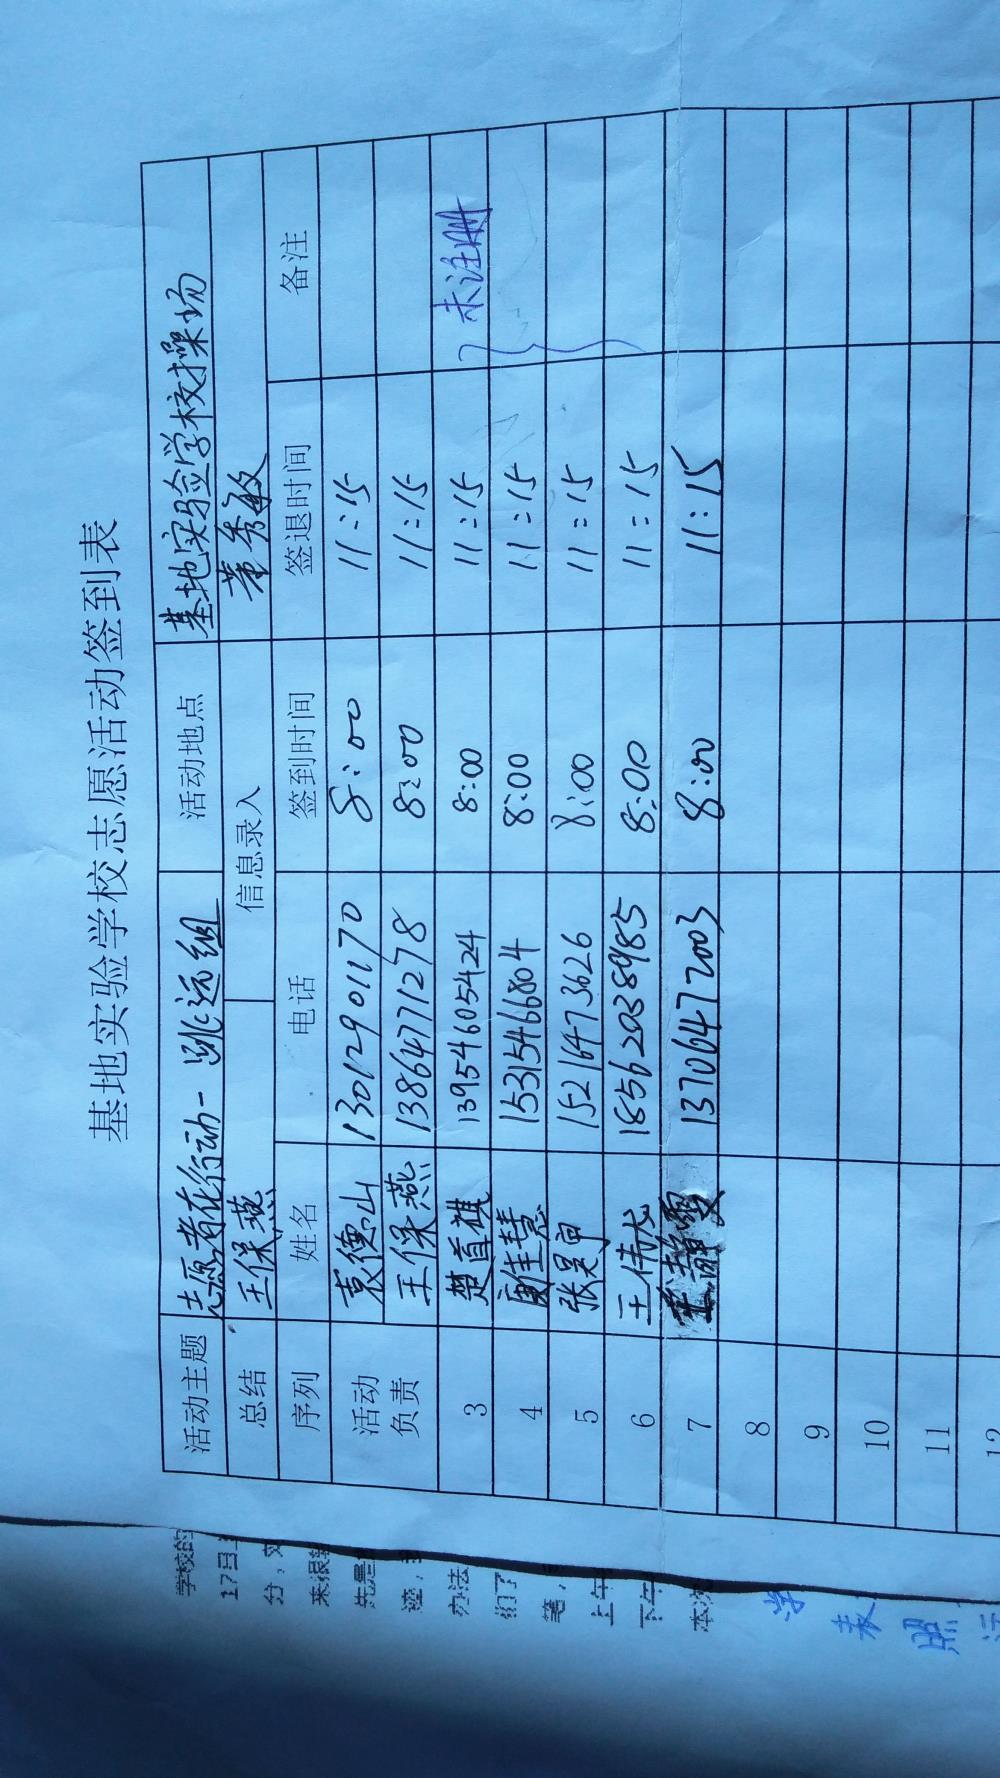 基地实验学校志愿活动签到表
活动主题 志愿者在行动一跳远组 活动地点 基地实验学校操场
总结 王保燕 信息录入 董秀敏
序列 姓名 电话 签到时间 签退时间 备注
活动 袁德山 13012901170 8:00 11:15
负责 王保燕 13864771278 8:00 11:15
3 楚道祺 13954605424 8:00 11:15 未注册
4 康佳慧 15315466804 8:00 11:15
5 张昊宇 15216473626 8:00 11:15
6 王伟龙 18562038985 8:00 11:15
7 13706472003 8:00 11:15
8
9
10
11
12
学校的
17日
分，
来很
先是
迹，
办法
们了
笔，
上午
下午
本次
学
表
照